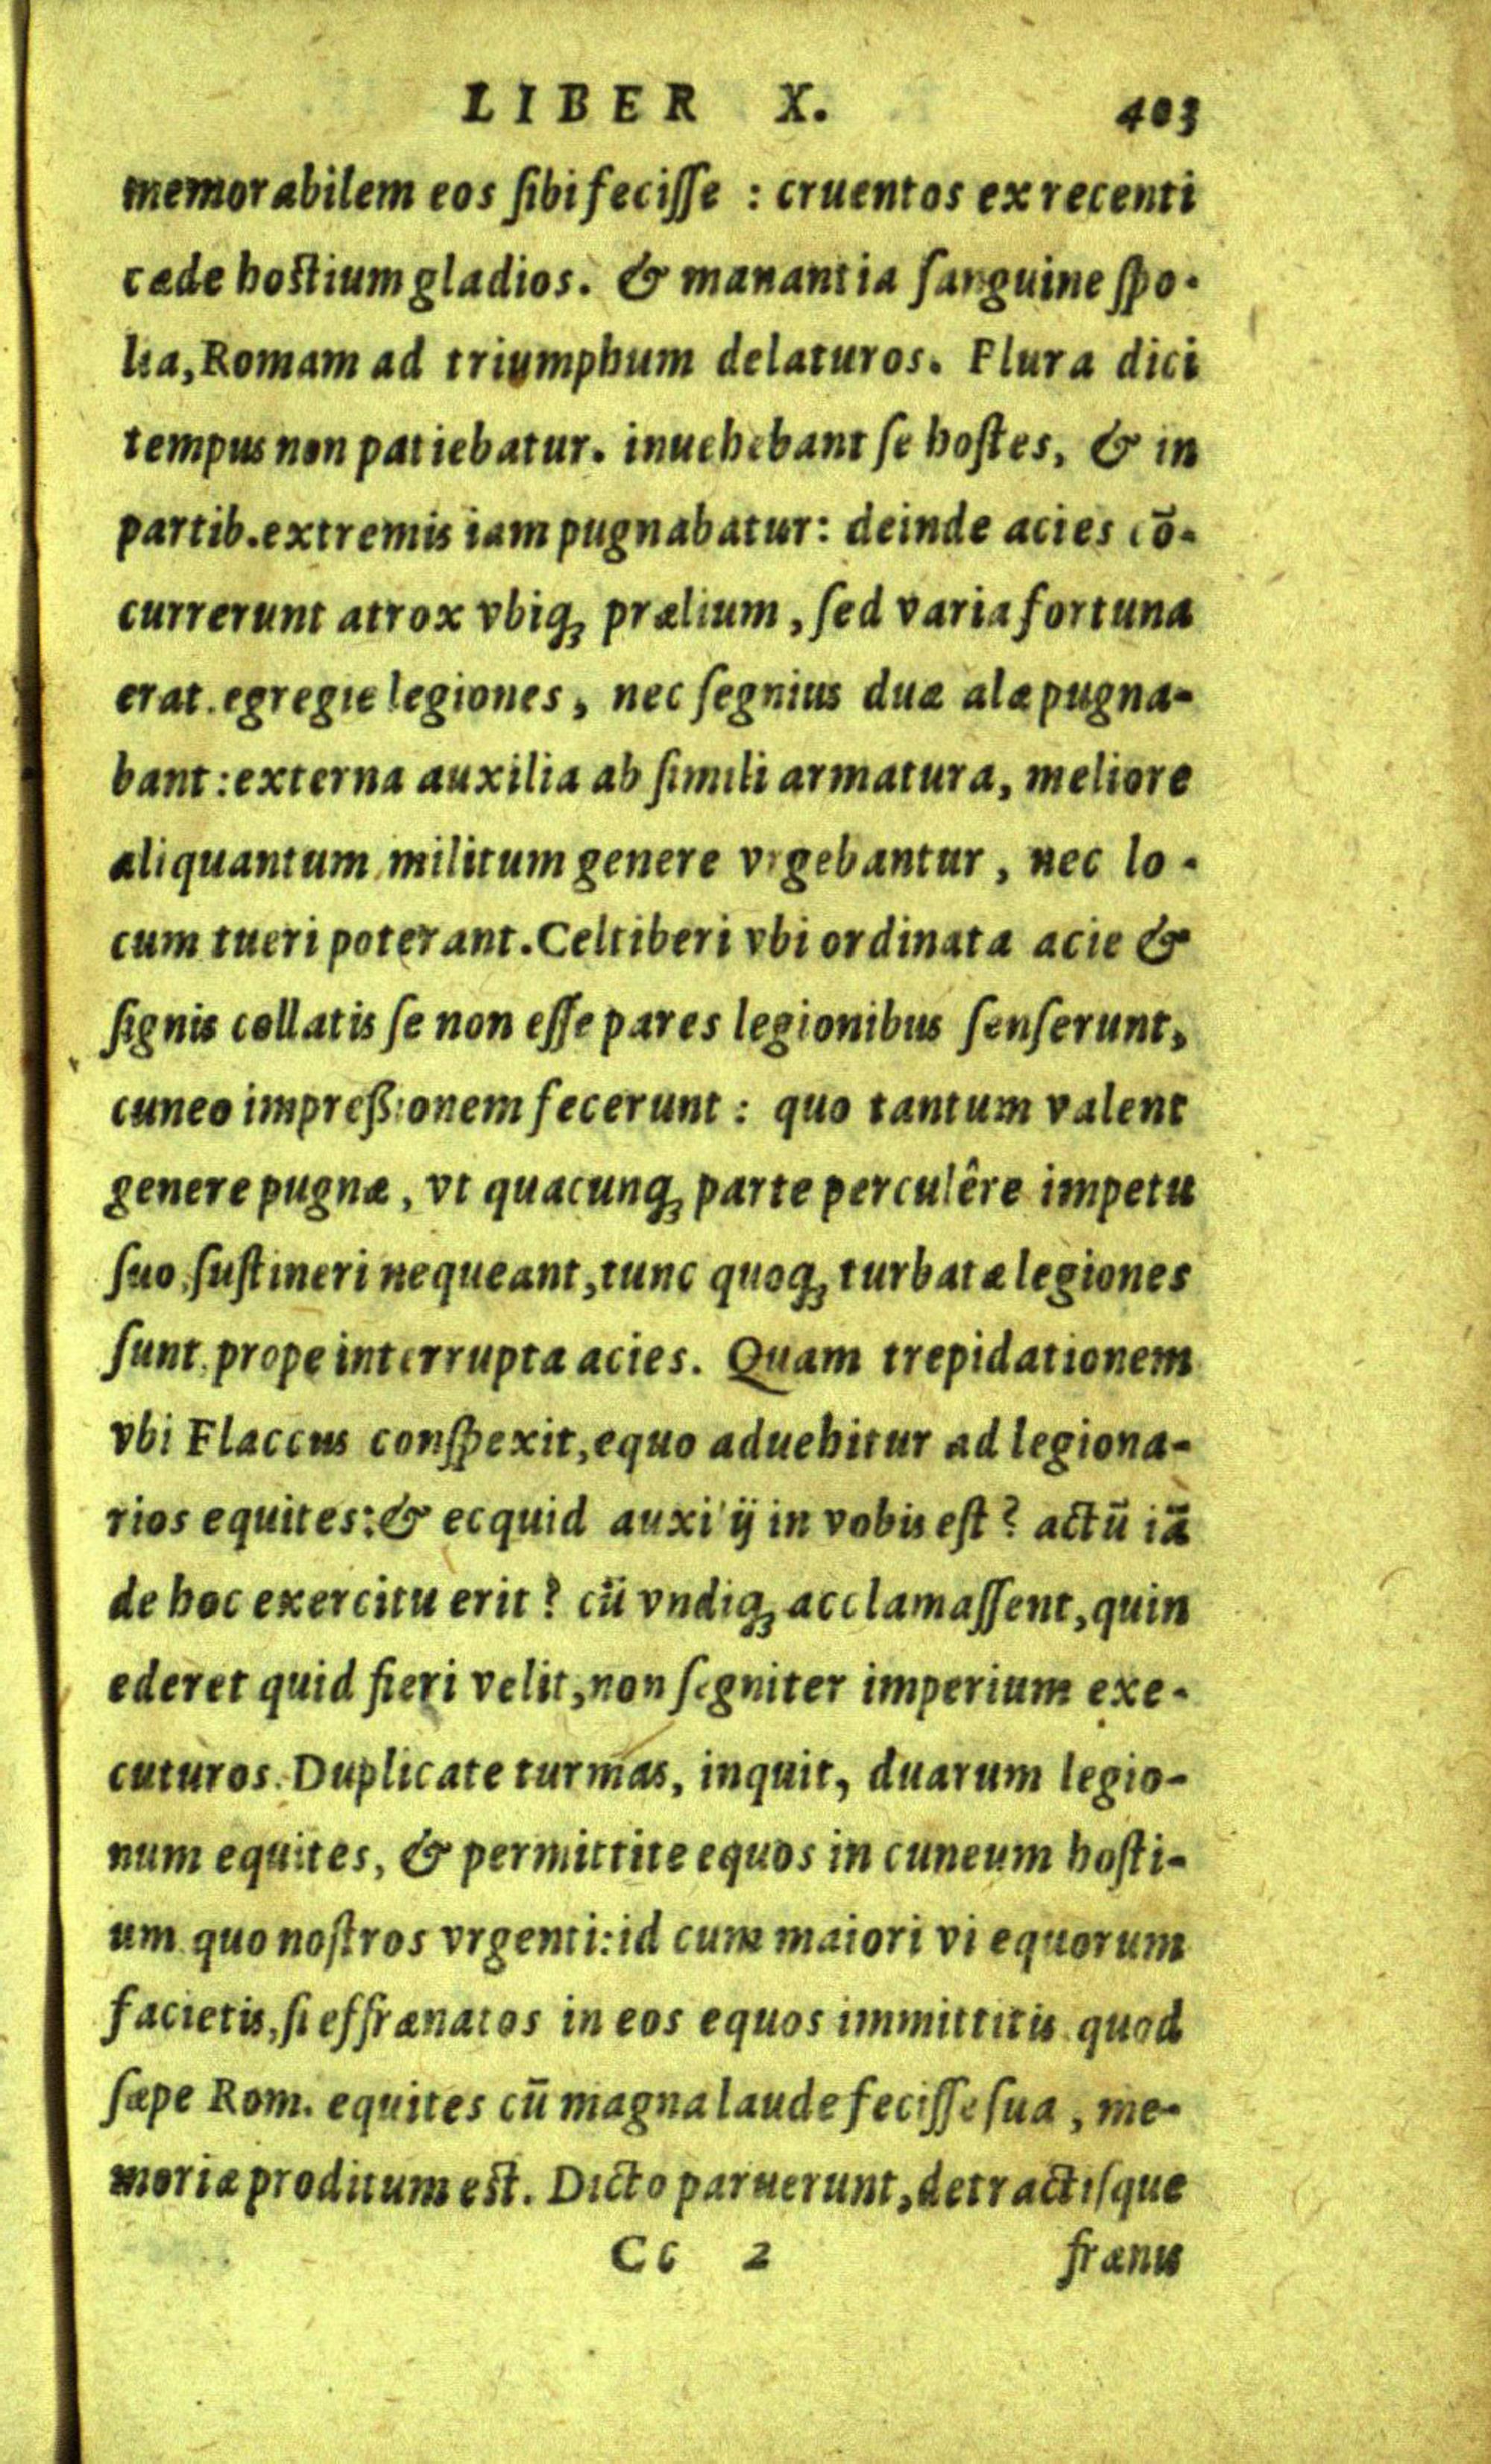 LIBER X. 403
memorabilem eos ſibi feciſſe : cruentos ex recenti
cæde hoſtium gladios. & manantia ſanguine ſpo-
lia, Romam ad triumphum delaturos. Plura dici
tempus non patiebatur. inuehebant ſe hoſtes, & in
partib. extremis iam pugnabatur: deinde acies cō-
currerunt atrox vbiq; prælium, ſed varia fortuna
erat. egregie legiones, nec ſegnius duæ alæ pugna-
bant: externa auxilia ab ſimili armatura, meliore
aliquantum militum genere vrgebantur, nec lo-
cum tueri poterant. Celtiberi vbi ordinata acie &
ſignis collatis ſe non eſſe pares legionibus ſenſerunt,
cuneo impreßionem fecerunt: quo tantum valent
genere pugnæ, vt quacunq; parte perculêre impetu
ſuo, ſuſtineri nequeant, tunc quoq; turbatæ legiones
ſunt. prope interrupta acies. Quam trepidationem
vbi Flaccus conſpexit, equo aduehitur ad legiona-
rios equites: & ecquid auxilij in vobis eſt? actū iā
de hoc exercitu erit? cū vndiq; acclamaſſent, quin
ederet quid fieri velit, non ſegniter imperium exe-
cuturos. Duplicate turmas, inquit, duarum legio-
num equites, & permittite equos in cuneum hoſti-
um quo noſtros vrgenti: id cum maiori vi equorum
facietis, ſi effrænatos in eos equos immittitis quod
ſæpe Rom. equites cū magna laude feciſſe ſua, me-
moriæ proditum eſt. Dicto paruerunt, detractiſque
Cc 2 frænis